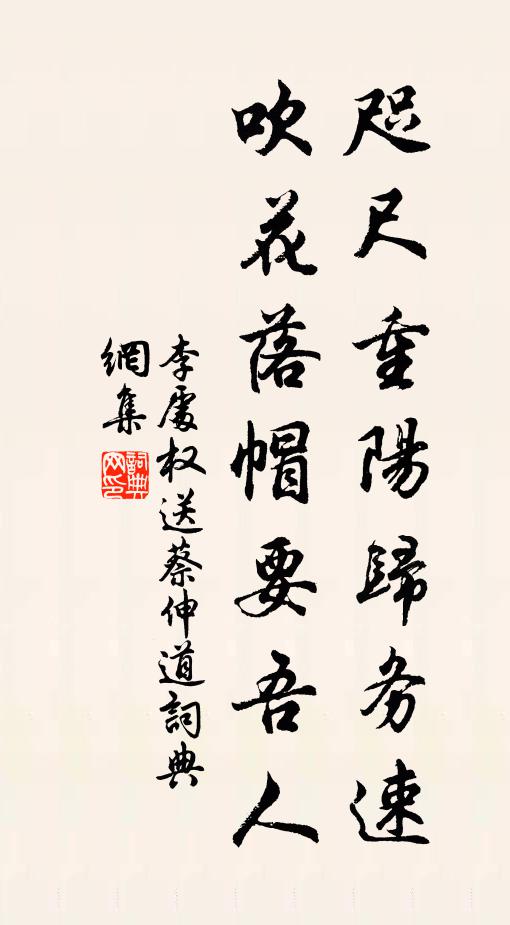 咫尺重陽歸务速
吹花落帽要吾人
李處权送蔡伸道詞典
網集
詞典网印